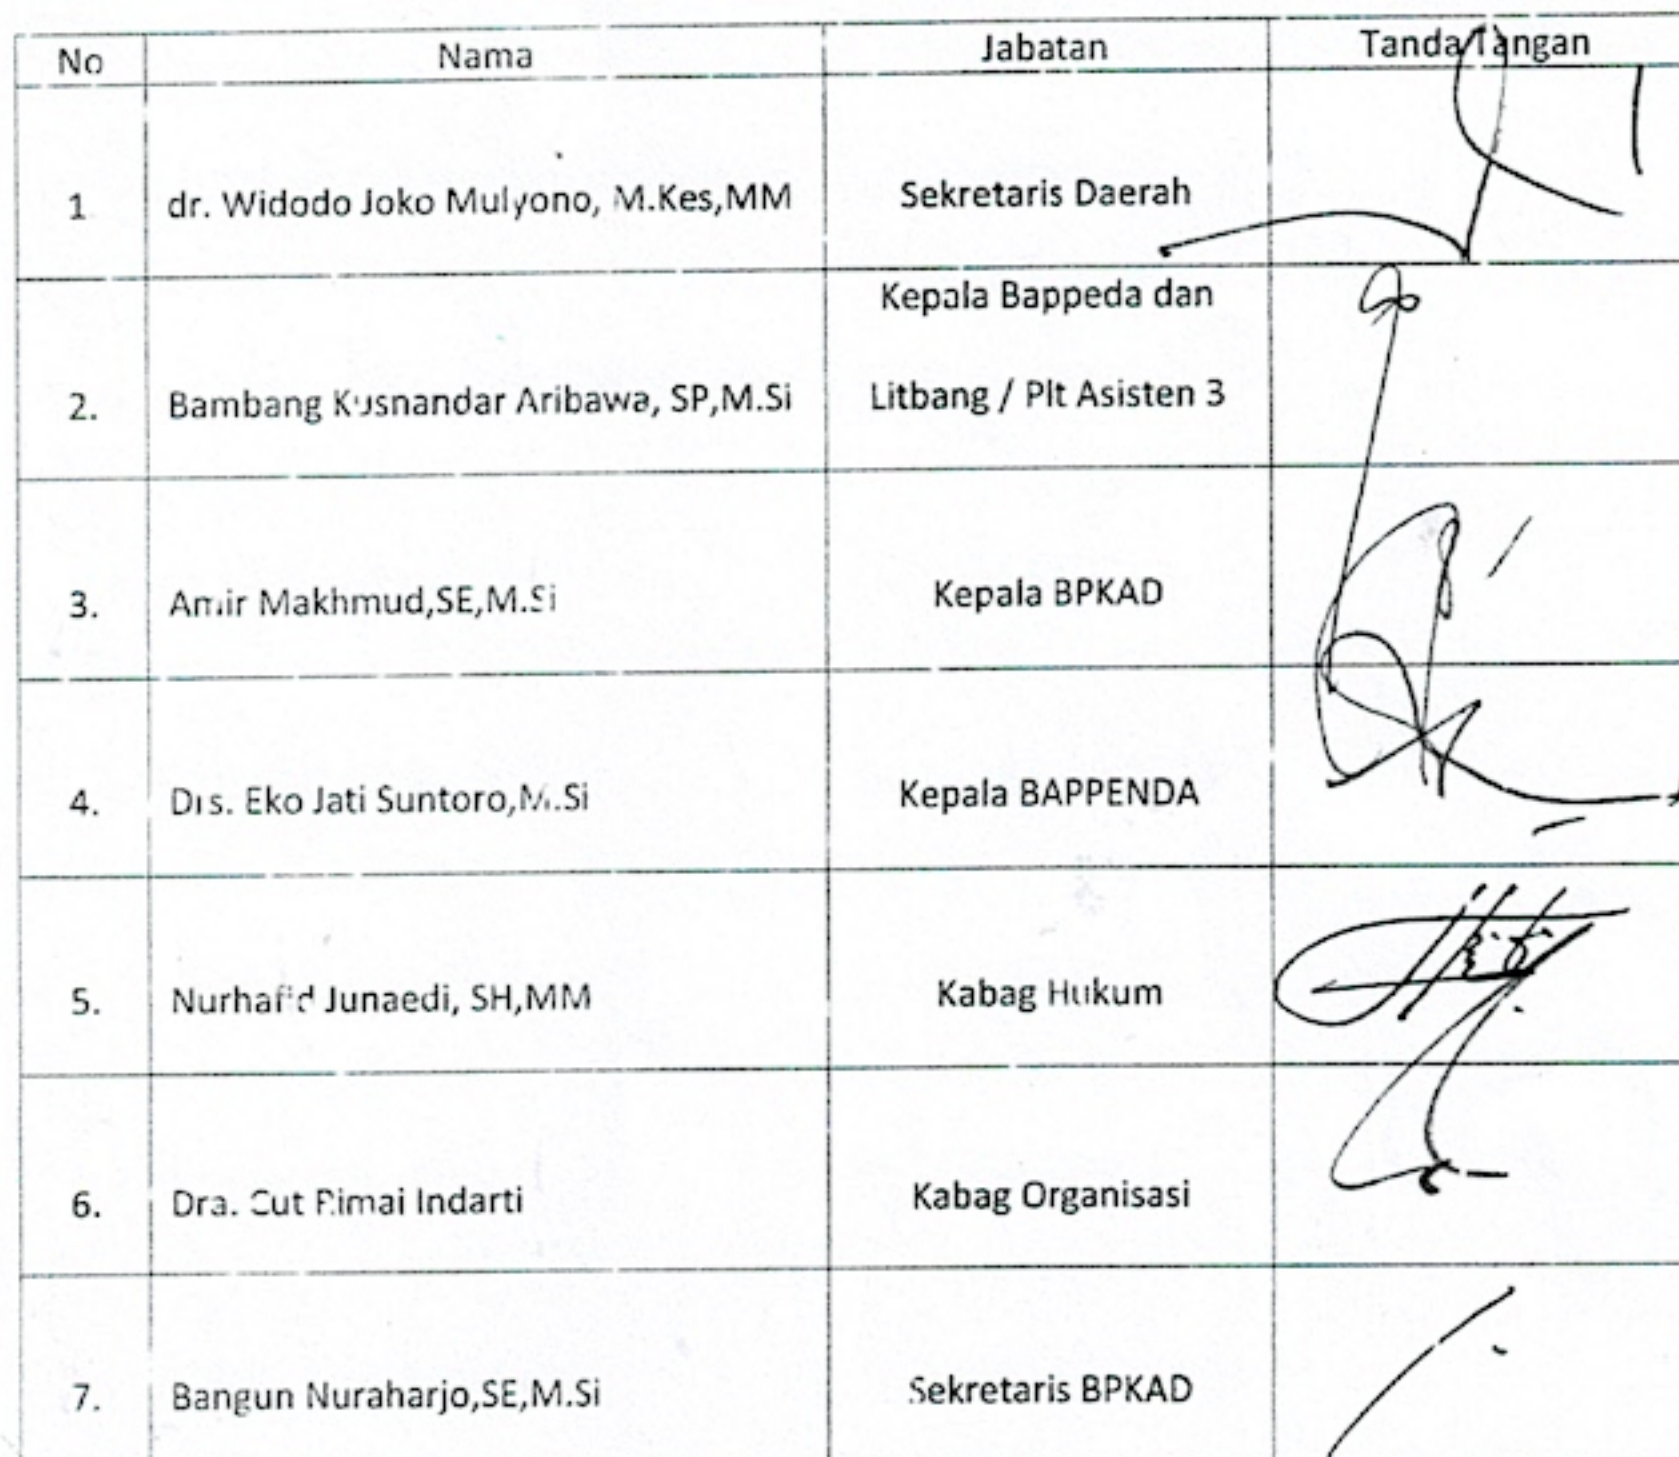 No Nama Jabatan Tanda Tangan
1 dr. Widodo Joko Mulyono, M.Kes,MM Sekretaris Daerah
Kepala Bappeda dan
2. Bambang Kusnandar Aribawa, SP,M.Si Litbang / Plt Asisten 3
3. Amir Makhmud,SE,M.Si Kepala BPKAD
4. Drs. Eko Jati Suntoro,M.Si Kepala BAPPENDA
5. Nurhafid Junaedi, SH,MM Kabag Hukum
6. Dra. Cut Rimai Indarti Kabag Organisasi
7. Bangun Nuraharjo,SE,M.Si Sekretaris BPKAD